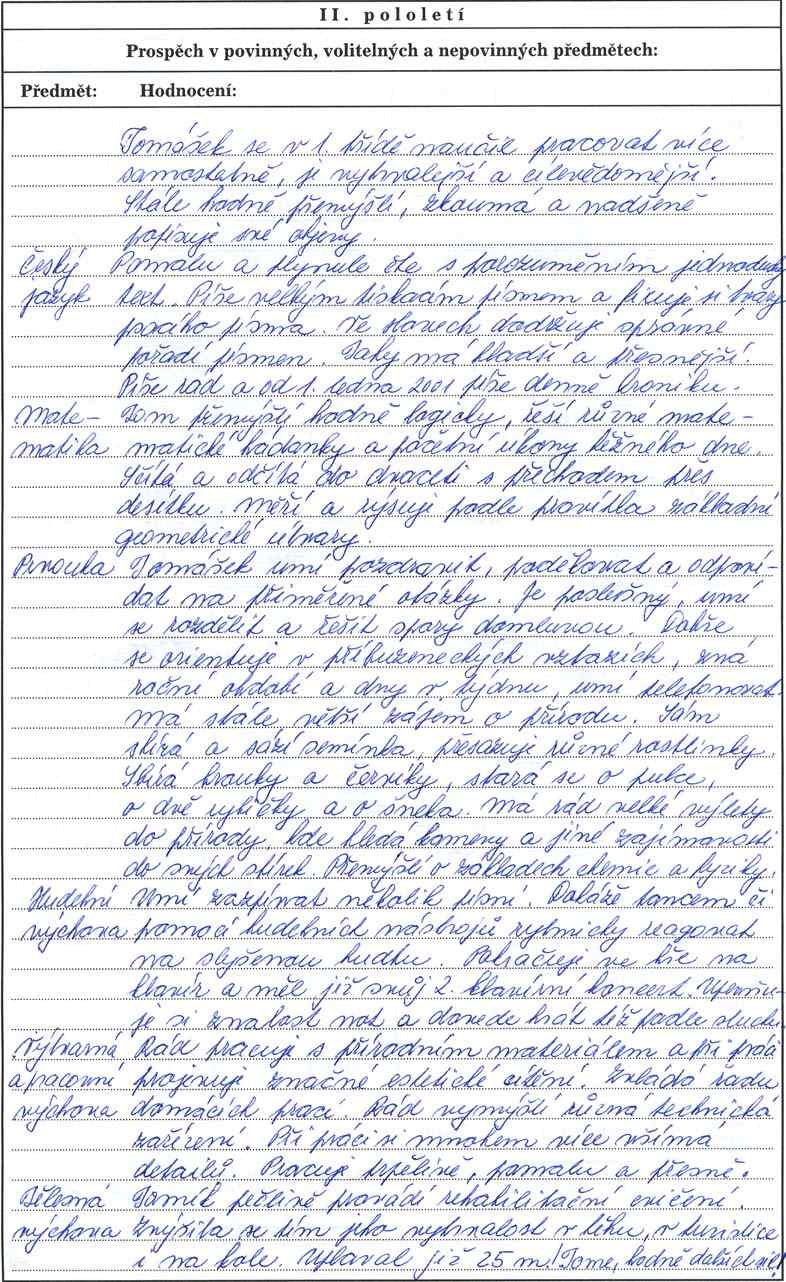 II. pololetí
Prospěch v povinných, volitelných a nepovinných předmětech:
Předmět: Hodnocení:
Tomášek se v 1. třídě naučil pracovat více
samostatně, je vytrvalejší a cílevědomější.
Stále hodně přemýšlí, zkoumá a nadšeně
popisuje své objevy.
Český Pomalu a plynule čte s porozuměním jednoduchý
jazyk text. Píše velkým tiskacím písmem a fixuje si tvary
psacího písma. Ve slovech dodržuje správné
pořadí písmen. Tahy má hladší a přesnější.
Píše rád a od 1. ledna 2001 píše denně kroniku.
Mate- Tom přemýšlí hodně logicky, řeší různé mate-
matika matické hádanky a početní úkony běžného dne.
Sčítá a odčítá do dvaceti s přechodem přes
desítku. Měří a rýsuje podle pravítka základní
geometrické útvary.
Prvouka Tomášek umí pozdravit, poděkovat a odpoví-
dat na přiměřené otázky. Je poslušný, umí
se rozdělit a řešit spory domluvou. Dobře
se orientuje v příbuzeneckých vztazích, zná
roční období a dny v týdnu, umí telefonovat.
Má stále větší zájem o přírodu. Sám
sbírá a sází semínka, přesazuje různé rostlinky.
Sbírá brouky a červíky, stará se o pulce,
o dvě rybičky a o šneka. Má rád velké výlety
do přírody, kde hledá kameny a jiné zajímavosti
do svých sbírek. Přemýšlí o základech chemie a fyziky.
Hudební Umí zazpívat několik písní. Dokáže tancem či
výchova pomocí hudebních nástrojů rytmicky reagovat
na slyšenou hudbu. Pokračuje ve hře na
klavír a měl již svůj 2. klavírní koncert. Upevňu-
je si znalost not a dovede hrát též podle sluchu.
Výtvarná Rád pracuje s přírodním materiálem a při práci
a pracovní projevuje značné estetické cítění. Zvládá řadu
výchova domácích prací. Rád vymýšlí různá technická
zařízení. Při práci si mnohem více všímá
detailů. Pracuje trpělivě, pomalu a přesně.
Tělesná Tomík pečlivě provádí rehabilitační cvičení.
výchova Zvýšila se tím jeho vytrvalost v běhu, v turistice
i na kole. Uplaval již 25 m! Tome, hodně dalších sil!